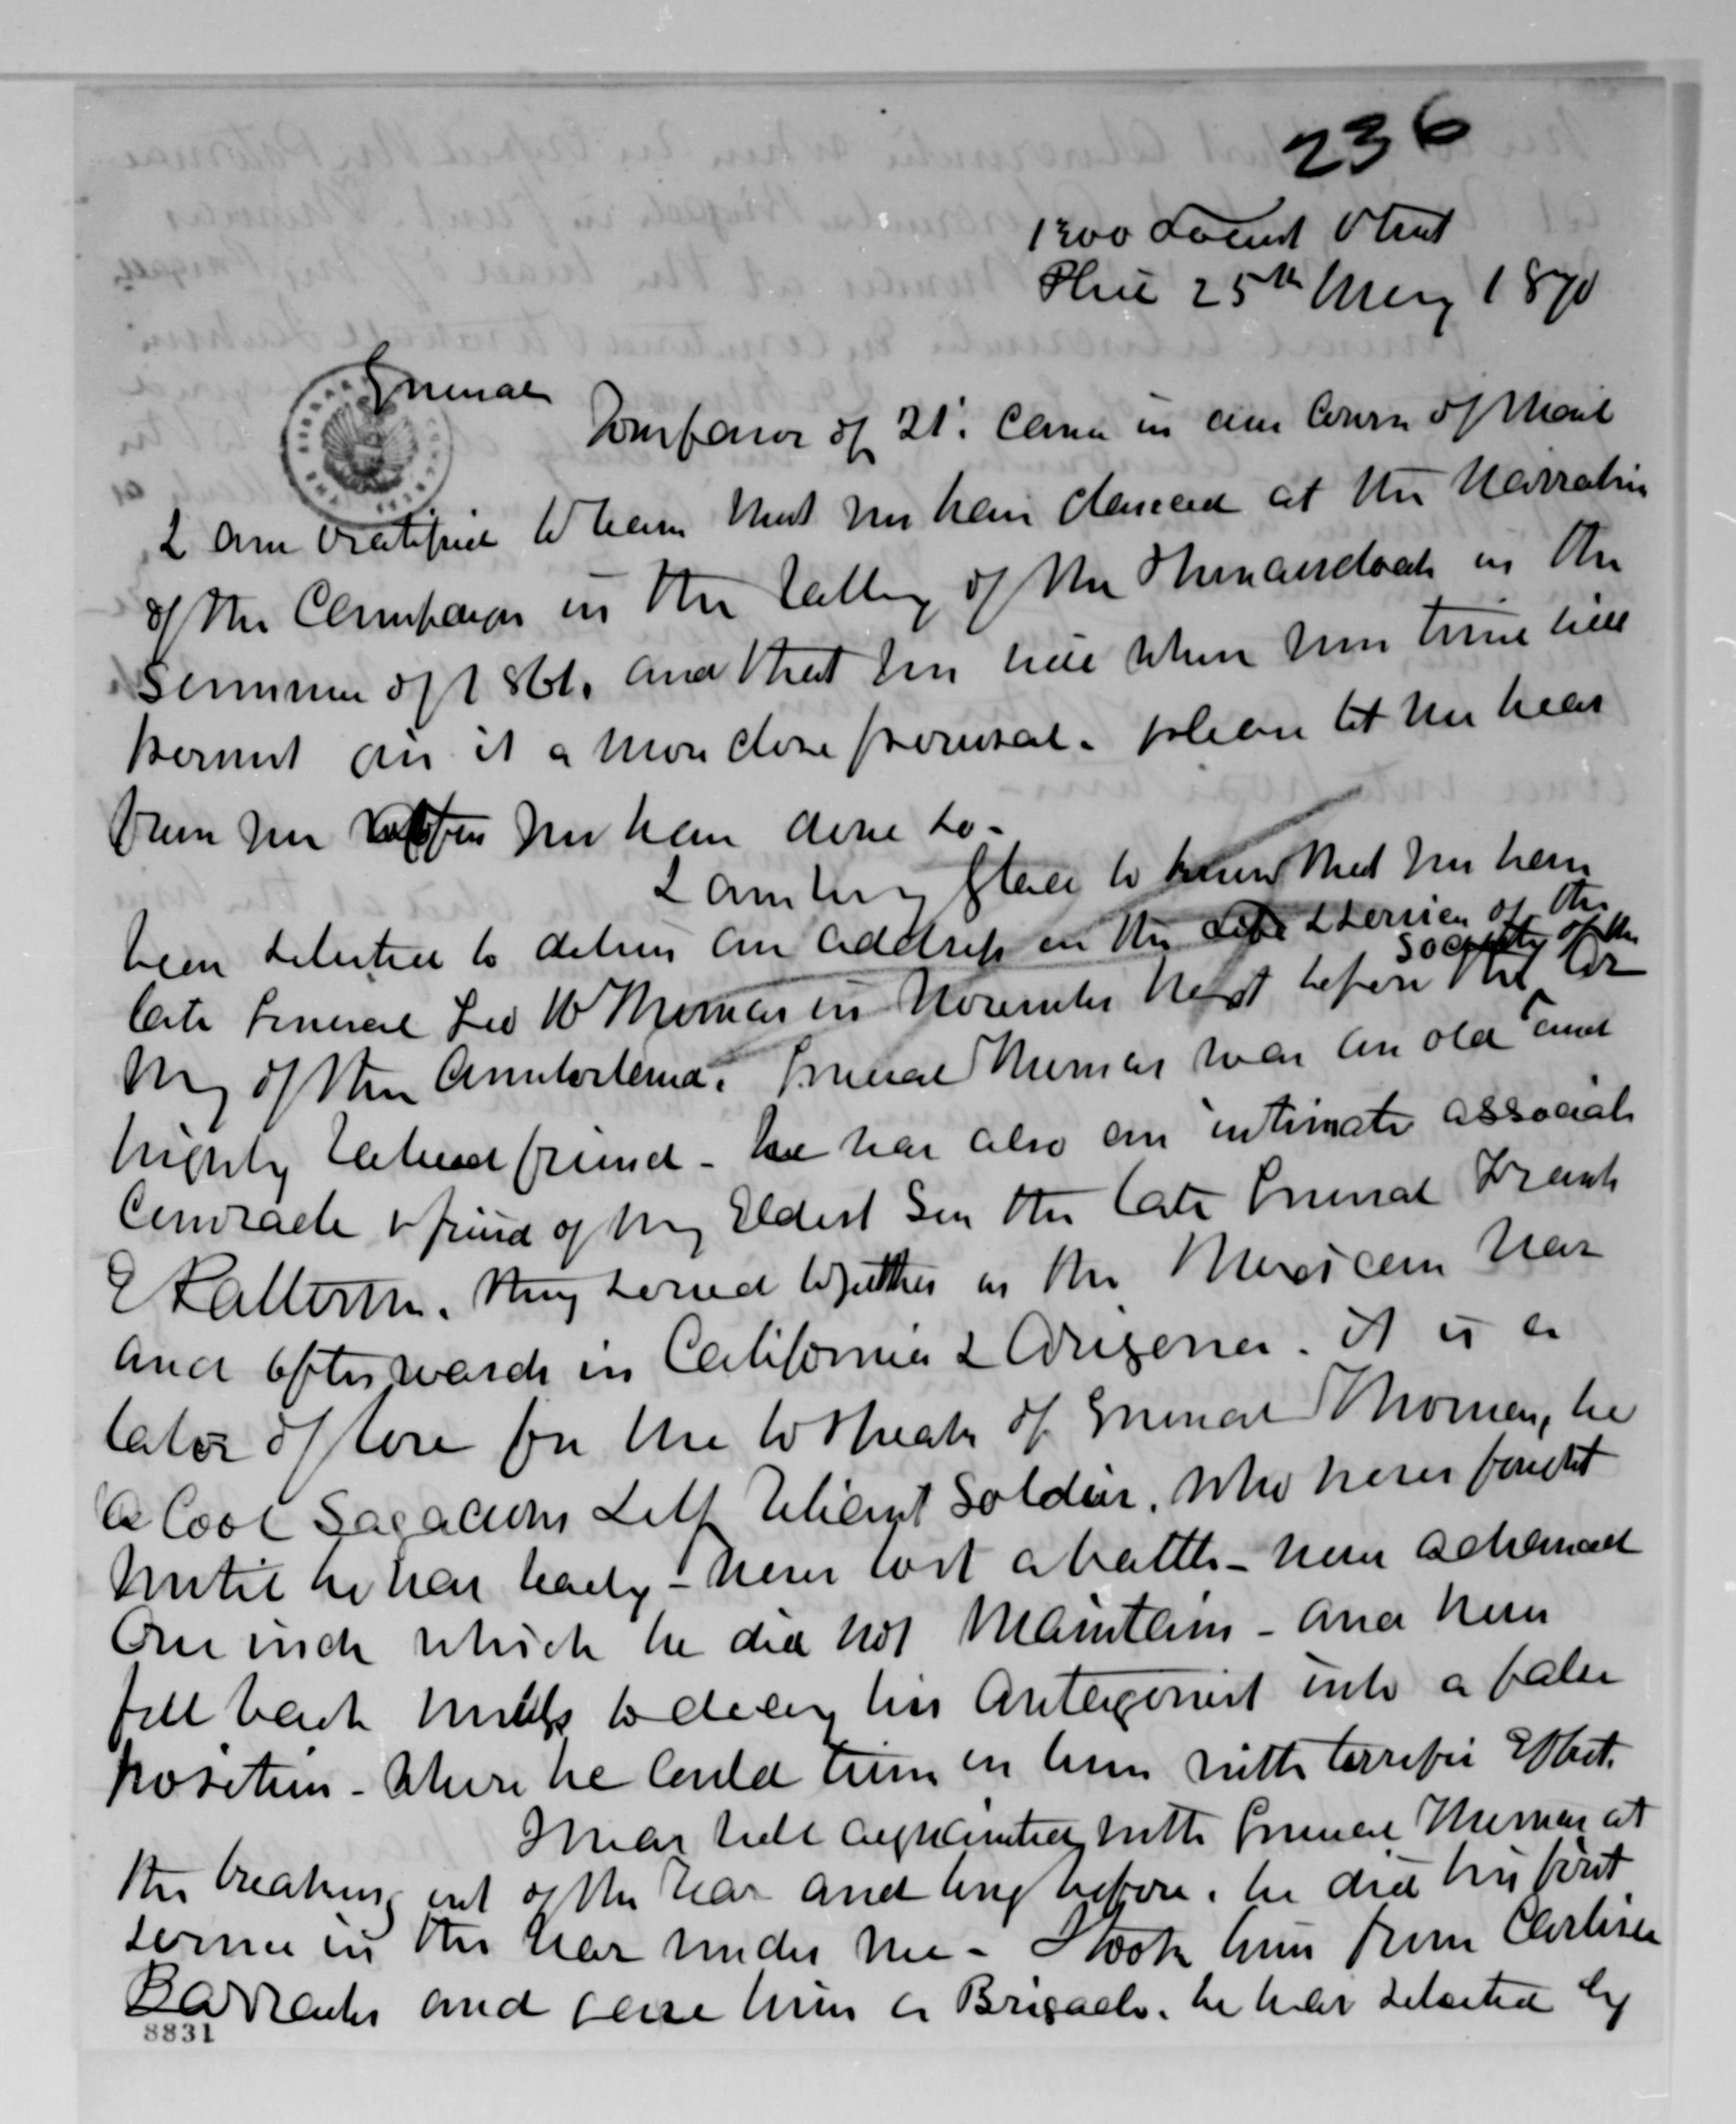 236
1300 Locust Street
Phil 25th May 1870
General
Your favor of 21st. came in due course of Mail
I am gratified to learn that you have glanced at the Narrative
of the Campaign in the Valley of the Shenandoah in the
Summer of 1861. and that you will when your time will
permit give it a more close perusal. please let me hear
from you when you have done so.
I am very glad to know that you have
been selected to deliver an address on the Life & Services of the
late General Geo H Thomas in November next before the Society of the
Army of the Cumberland. General Thomas was an old and
highly valued friend - he was also an intimate associate
Comrade & friend of my Eldest Son the late General Frank
E Patterson. They served together in the Mexican War
and afterwards in California & Arizona. it is a
labor of love for me to speak of General Thomas, he
a Cool Sagacious Self reliant Soldier. who never fought
until he was ready - never lost a battle - never advanced
One inch which he did not Maintain - and never
fell back unless to decoy his Antagonist into a false
position - where he could turn on him with terrific Effect.
I was well acquainted with General Thomas at
the breaking out of the War and long before. he did his first
service in the War under me - I took him from Carlisle
Barracks and gave him a Brigade. he was selected by
8831